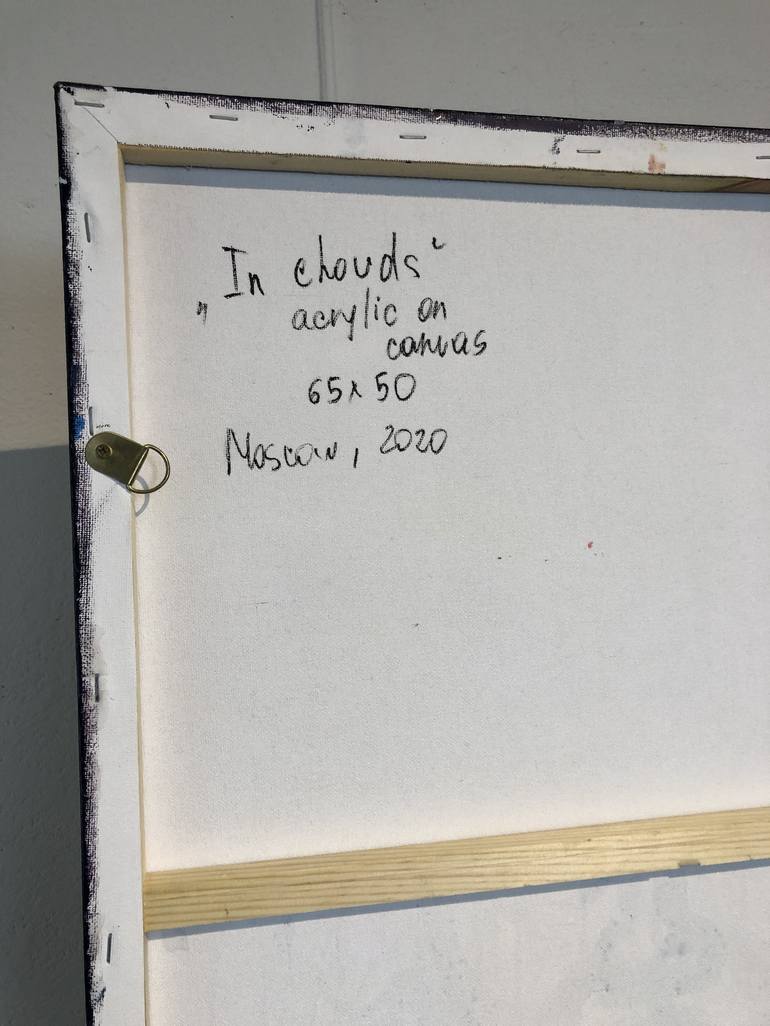 „In clouds“
acrylic on
canvas
65x50
Moscow, 2020